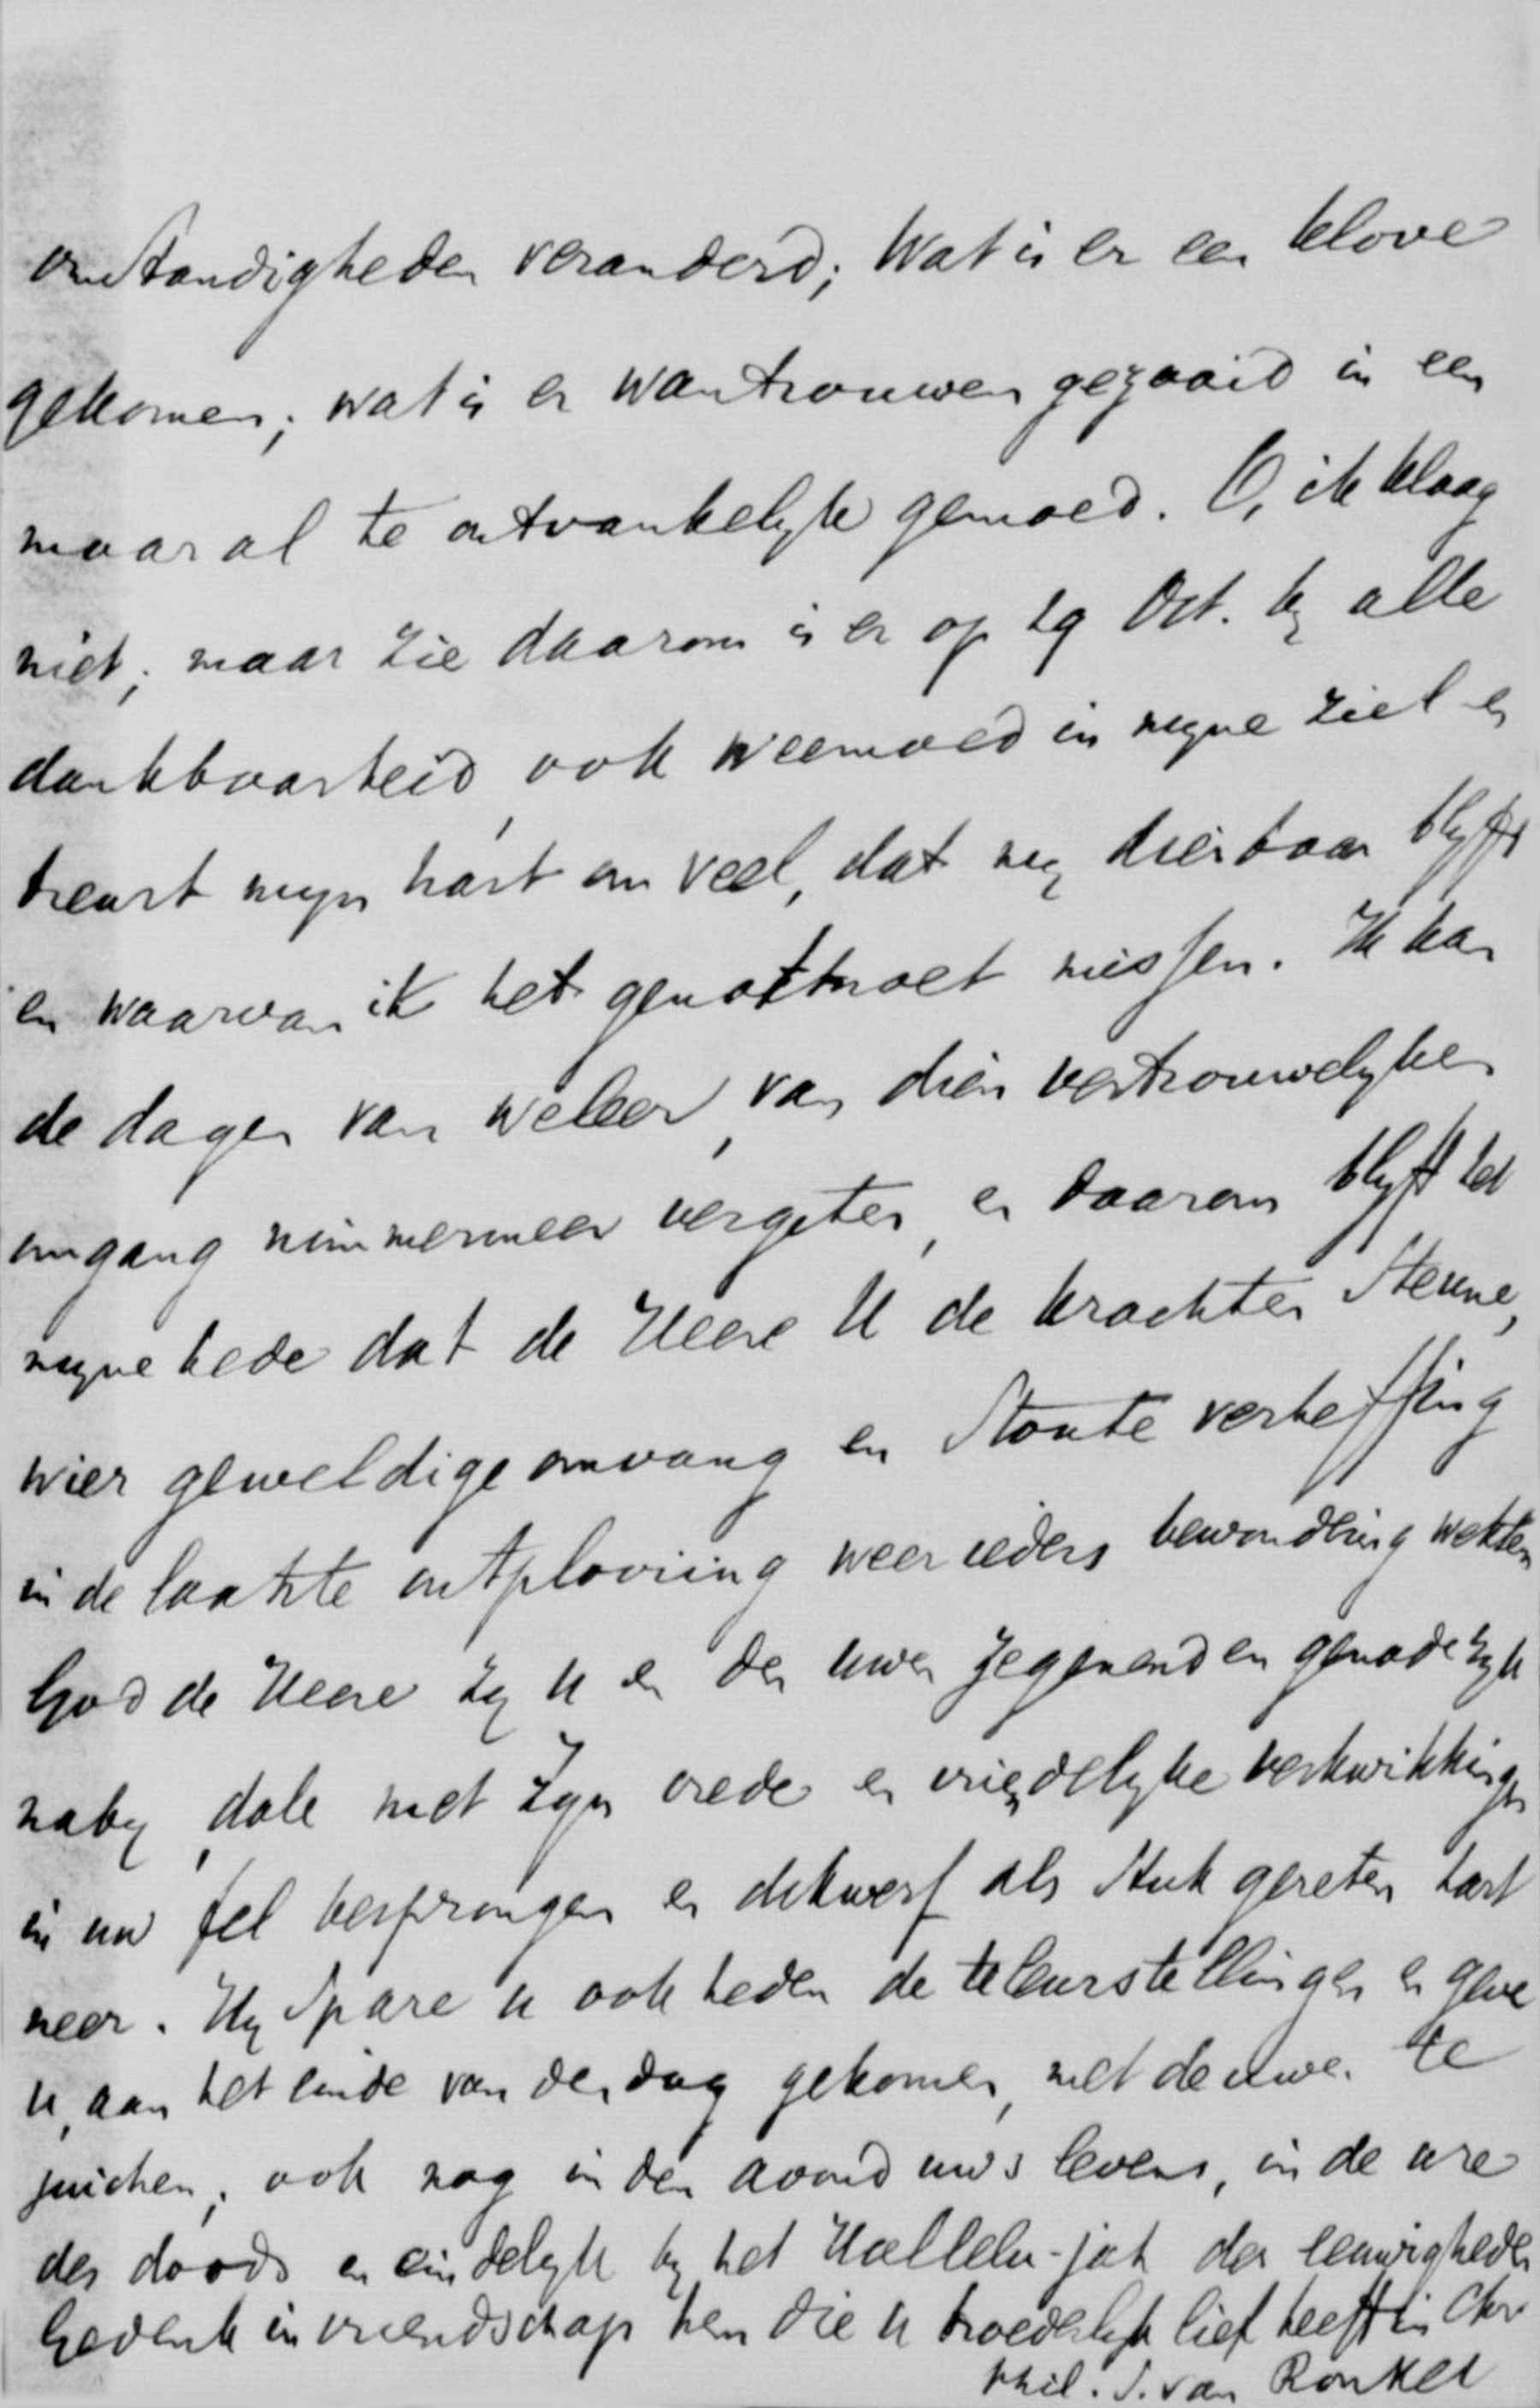 omstandigheden veranderd; Wat is er een klove
gekomen; wat is er wantrouwen gezaaid in een
maar al te ontvankelyk gemoed. O, ik klaag
niet; maar zie daarom is er op 29 Oct. by alle
dankbaarheid, ook weemoed in myne ziel en
treurt myn hart om veel, dat my dierbaar blyft
en waarvan ik het genot moet missen. Ik kan
de dagen van weleer, van dien vertrouwelyken
omgang nimmermeer vergeten, en daarom blyft het
myne bede dat de Heere U de krachten steune,
wier geweldige omvang en stoute verheffing
in de laatste ontplooiing weer ieders bewondering wekten
God de Heere zy U en den uwen zegenend en genadelyk
naby, dale met Zyn vrede en vriendelyke verkwikkingen
in uw fel besprongen en dikwerf als stuk gereten hart
neer. Hy spare u ook heden de teleurstellingen en geve
u, aan het einde van den dag gekomen, met de uwen te
juichen; ook nog in den avond uws levens, in de ure
des doods en eindelyk by het Hallelu-jah der eeuwigheden
Gedenk in vriendschap hem die u broederlyk lief heeft in Chr
Phil. S. van Ronkel